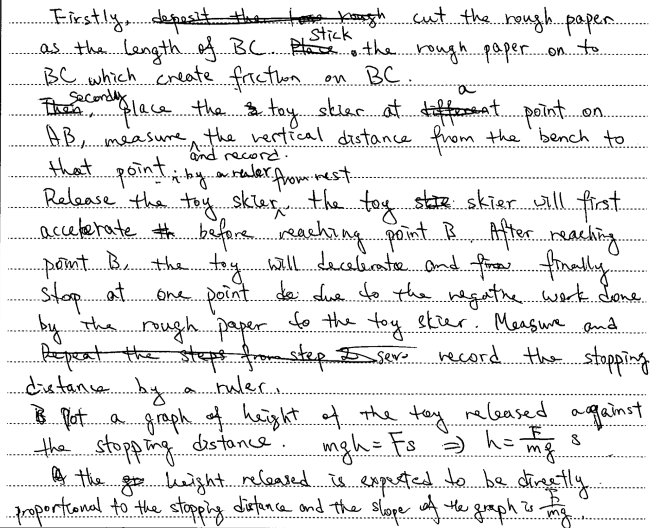 Firstly, cut the rough paper
as the length of BC. Stick the rough paper on to
BC which create friction on BC.
Secondly, place the toy skier at a point on
AB, measure and record the vertical distance from the bench to
that point by a ruler.
Release the toy skier from rest, the toy skier will first
accelerate before reaching point B. After reaching
point B, the toy will decelerate and finally
stop at one point due to the negative work done
by the rough paper to the toy skier. Measure and
record the stopping
distance by a ruler.
Plot a graph of height of the toy released against
the stopping distance. mgh = Fs ⇒ h = F/mg s
the height released is expected to be directly
proportional to the stopping distance and the slope of the graph is F/mg.